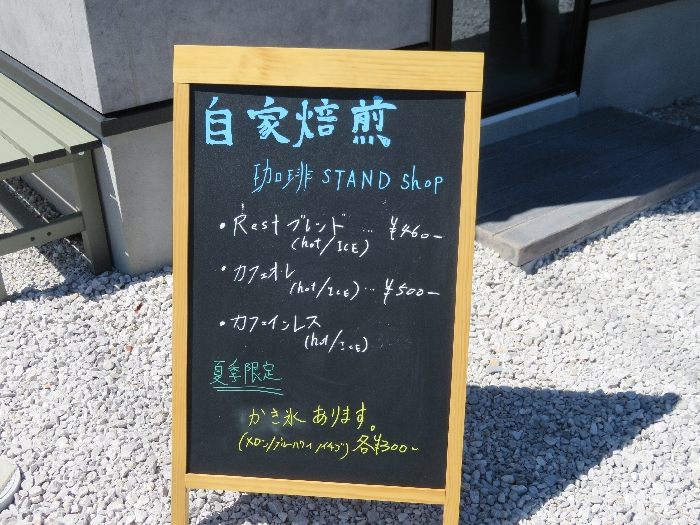 自家焙煎
珈琲 STAND shop
・Restブレンド … ¥460-
(hot/ICE)
・カフェオレ
(hot/ICE) … ¥500-
・カフェインレス
(hot/ICE)
夏季限定
かき氷あります。
(メロン/ブルーハワイ/イチゴ) 各¥300-